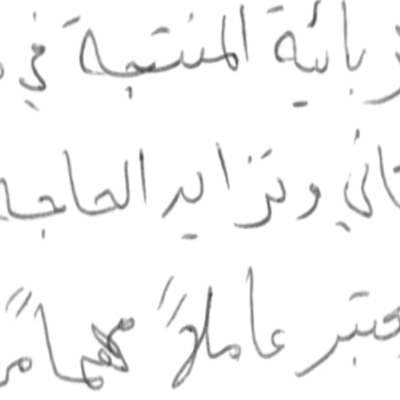 ربائية المنتجة في
اني وتزايد الحاجة
يعتبر عاملاً مهماً